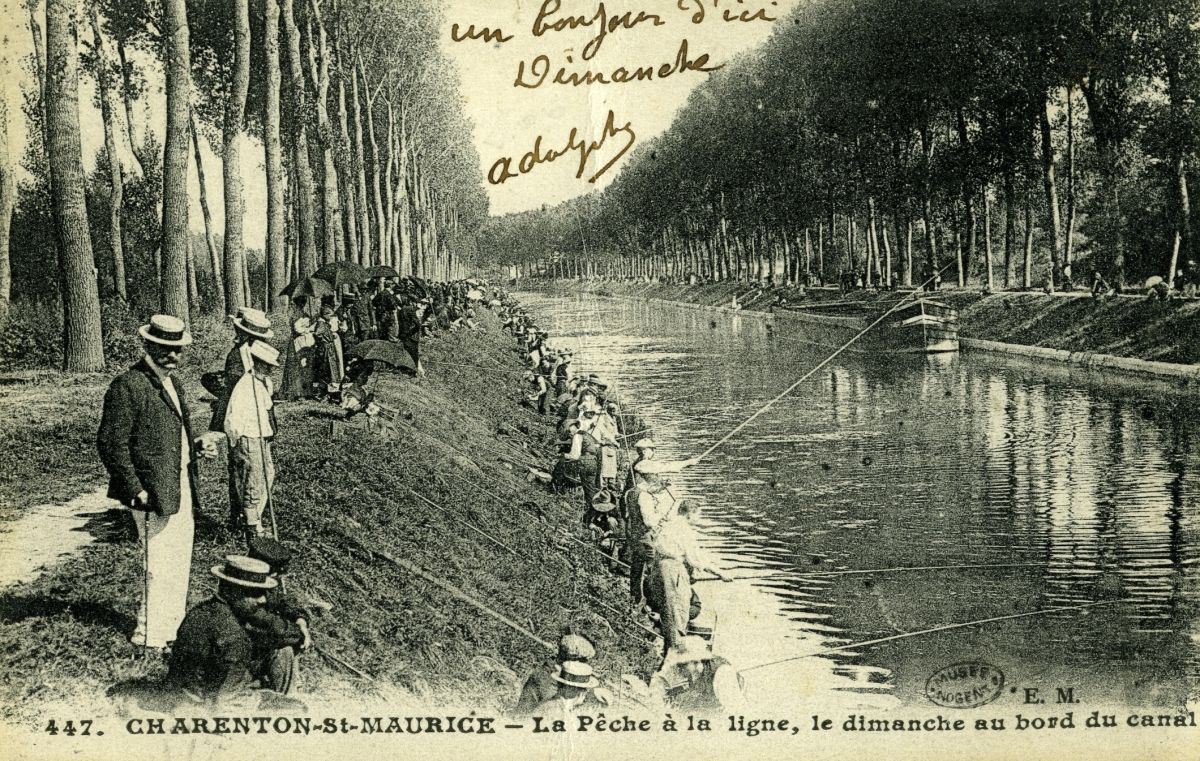 un bonjour d'ici
Dimanche
adolphe
MUSÉE
NOGENT
E. M.
447. CHARENTON-St-MAURICE – La Pêche à la ligne, le dimanche au bord du canal